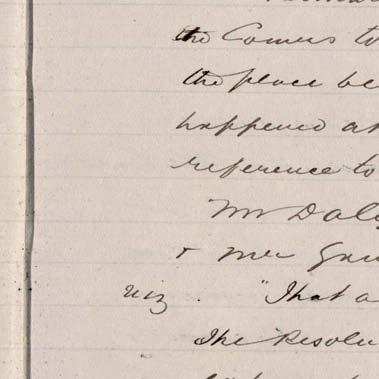 the Comers to
the place be
happened at
reference to
Mr Daly
+ Mr
viz. "That a
The Resolu